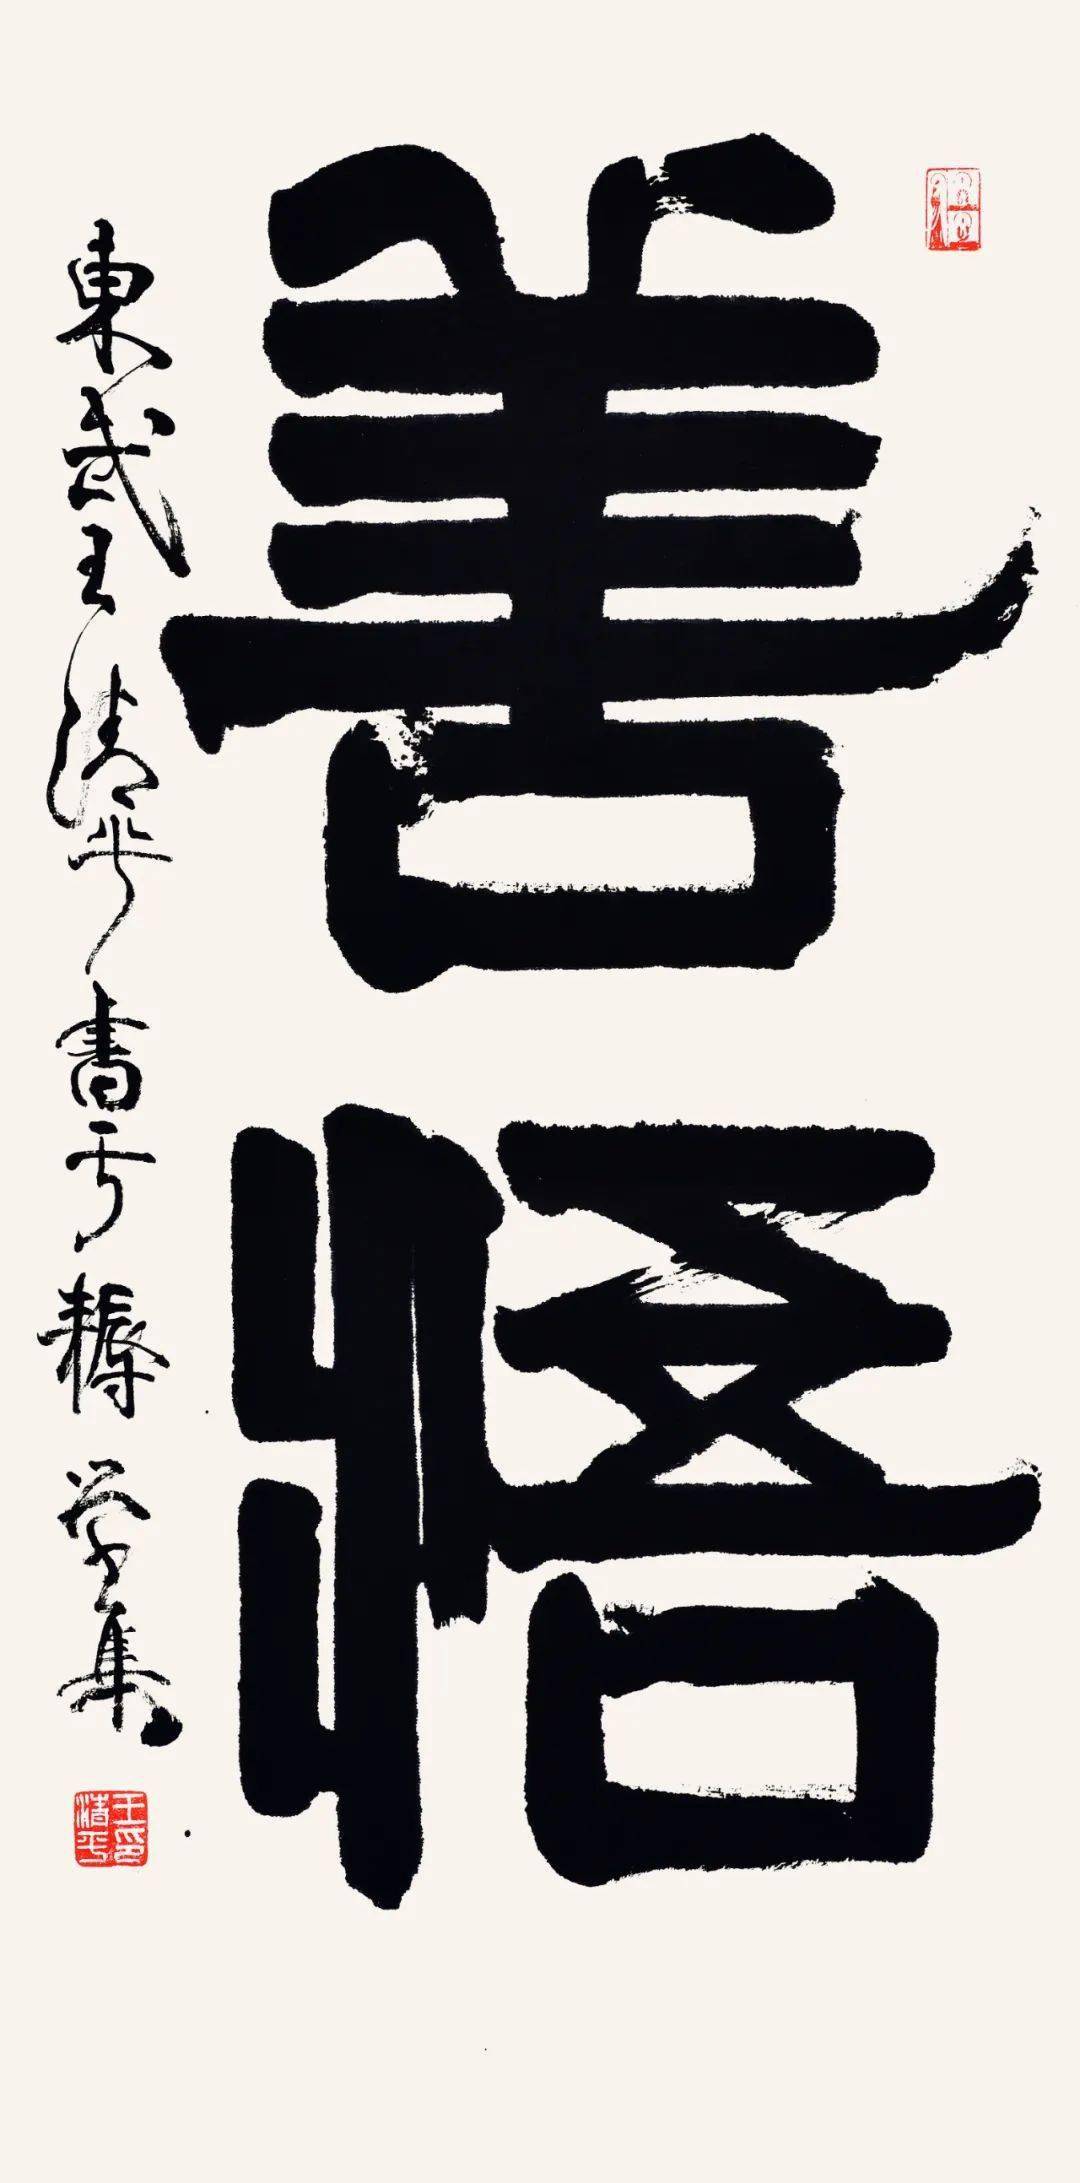 善悟
東武王清平書于耨學集
王印清平